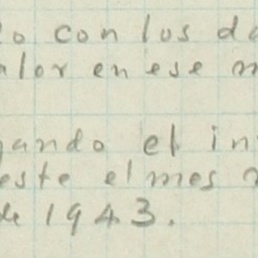 o con los da
alor en ese m
ando el in
este el mes
de 1943.